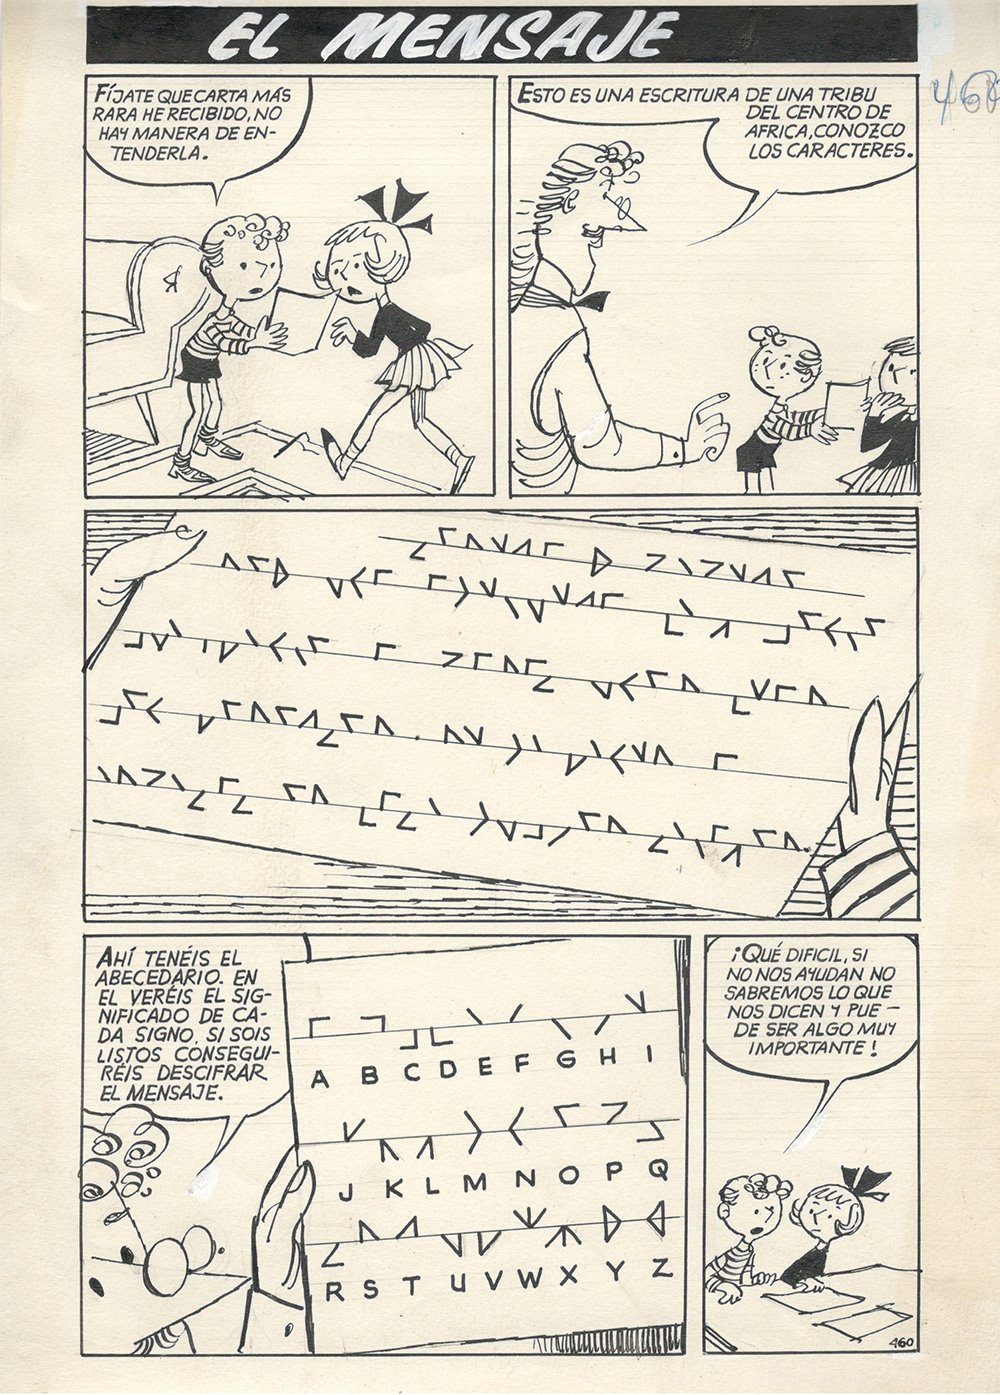 EL MENSAJE
468
FÍJATE QUE CARTA MÁS
RARA HE RECIBIDO, NO
HAY MANERA DE EN-
TENDERLA.
ESTO ES UNA ESCRITURA DE UNA TRIBU
DEL CENTRO DE
AFRICA, CONOZCO
LOS CARACTERES.
AHÍ TENÉIS EL
ABECEDARIO. EN
EL VERÉIS EL SIG-
NIFICADO DE CA-
DA SIGNO. SI SOIS
LISTOS CONSEGUI-
RÉIS DESCIFRAR
EL MENSAJE.
A B C D E F G H I
J K L M N O P Q
R S T U V W X Y Z
¡QUÉ DIFICIL, SI
NO NOS AYUDAN NO
SABREMOS LO QUE
NOS DICEN Y PUE-
DE SER ALGO MUY
IMPORTANTE!
460